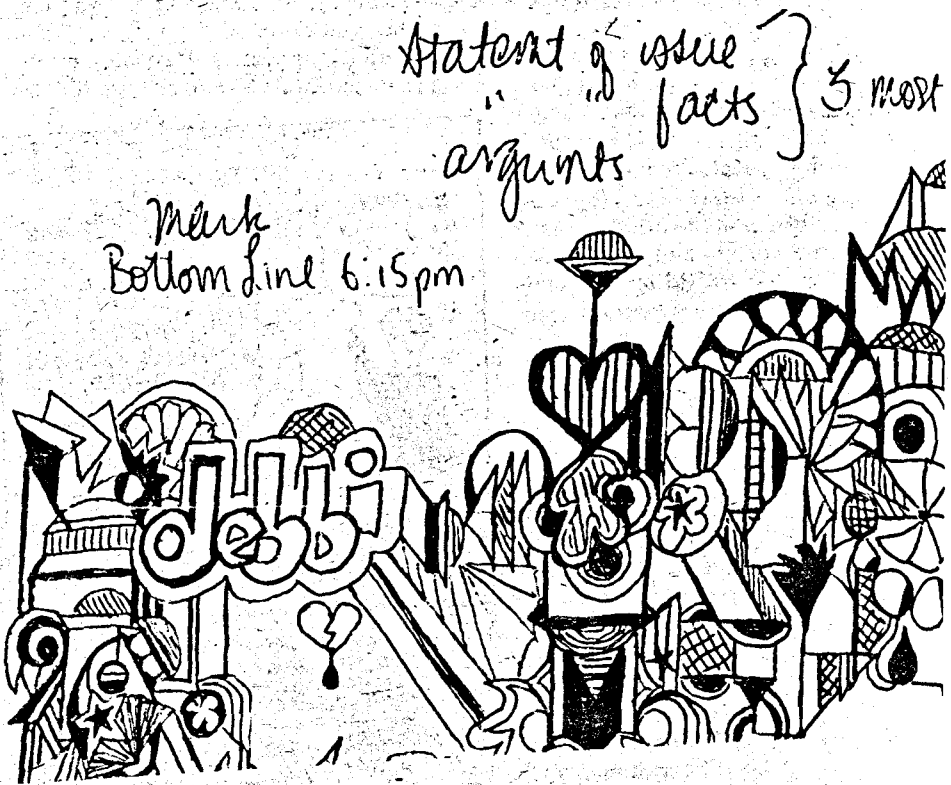 Statemt of issue
" " facts } 5 most
argumts
Mark
Bottom Line 6:15pm
debbi